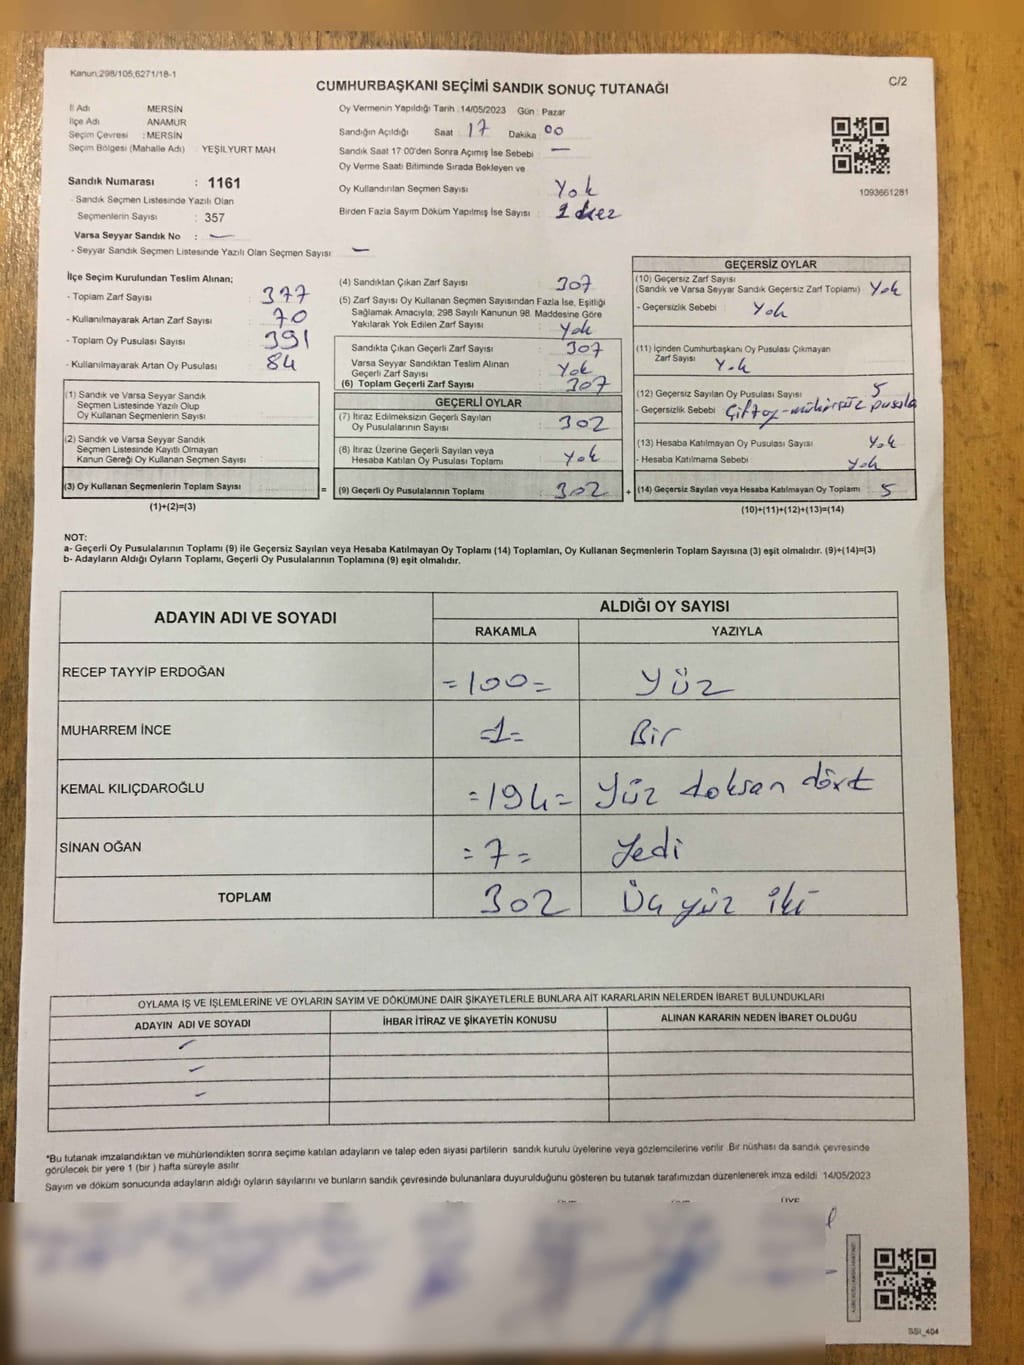 Kanun;298/105,6271/18-1
C/2
CUMHURBAŞKANI SEÇİMİ SANDIK SONUÇ TUTANAĞI
İl Adı MERSİN
İlçe Adı ANAMUR
Seçim Çevresi : MERSİN
Seçim Bölgesi (Mahalle Adı) : YEŞİLYURT MAH.
Sandık Numarası : 1161
- Sandık Seçmen Listesinde Yazılı Olan
Seçmenlerin Sayısı : 357
Varsa Seyyar Sandık No : —
- Seyyar Sandık Seçmen Listesinde Yazılı Olan Seçmen Sayısı: —
Oy Vermenin Yapıldığı Tarih :14/05/2023 Gün : Pazar
Sandığın Açıldığı Saat 17 Dakika 00
Sandık Saat 17:00'den Sonra Açımış İse Sebebi : —
Oy Verme Saati Bitiminde Sırada Bekleyen ve
Oy Kullandırılan Seçmen Sayısı : Yok
Birden Fazla Sayım Döküm Yapılmış İse Sayısı :
1093661281
İlçe Seçim Kurulundan Teslim Alınan;
- Toplam Zarf Sayısı : 377
- Kullanılmayarak Artan Zarf Sayısı : 70
- Toplam Oy Pusulası Sayısı : 391
- Kullanılmayarak Artan Oy Pusulası : 84
(1) Sandık ve Varsa Seyyar Sandık
Seçmen Listesinde Yazılı Olup
Oy Kullanan Seçmenlerin Sayısı :
(2) Sandık ve Varsa Seyyar Sandık
Seçmen Listesinde Kayıtlı Olmayan
Kanun Gereği Oy Kullanan Seçmen Sayısı :
(3) Oy Kullanan Seçmenlerin Toplam Sayısı
(1)+(2)=(3)
(4) Sandıktan Çıkan Zarf Sayısı : 307
(5) Zarf Sayısı Oy Kullanan Seçmen Sayısından Fazla İse, Eşitliği
Sağlamak Amacıyla, 298 Sayılı Kanunun 98. Maddesine Göre
Yakılarak Yok Edilen Zarf Sayısı : Yok
Sandıkta Çıkan Geçerli Zarf Sayısı : 307
Varsa Seyyar Sandıktan Teslim Alınan
Geçerli Zarf Sayısı : Yok
(6) Toplam Geçerli Zarf Sayısı : 307
GEÇERLİ OYLAR
(7) İtiraz Edilmeksizin Geçerli Sayılan
Oy Pusulalarının Sayısı : 302
(8) İtiraz Üzerine Geçerli Sayılan veya
Hesaba Katılan Oy Pusulası Toplamı : Yok
= (9) Geçerli Oy Pusulalarının Toplamı : 302
GEÇERSİZ OYLAR
(10) Geçersiz Zarf Sayısı
(Sandık ve Varsa Seyyar Sandık Geçersiz Zarf Toplamı) Yok
- Geçersizlik Sebebi : Yok
(11) İçinden Cumhurbaşkanı Oy Pusulası Çıkmayan
Zarf Sayısı : Yok
(12) Geçersiz Sayılan Oy Pusulası Sayısı : 5
- Geçersizlik Sebebi : Çift oy - mühürsüz pusula
(13) Hesaba Katılmayan Oy Pusulası Sayısı : Yok
- Hesaba Katılmama Sebebi : Yok
+ (14) Geçersiz Sayılan veya Hesaba Katılmayan Oy Toplamı : 5
(10)+(11)+(12)+(13)=(14)
NOT:
a- Geçerli Oy Pusulalarının Toplamı (9) ile Geçersiz Sayılan veya Hesaba Katılmayan Oy Toplamı (14) Toplamları, Oy Kullanan Seçmenlerin Toplam Sayısına (3) eşit olmalıdır. (9)+(14)=(3)
b- Adayların Aldığı Oyların Toplamı, Geçerli Oy Pusulalarının Toplamına (9) eşit olmalıdır.
ADAYIN ADI VE SOYADI
ALDIĞI OY SAYISI
RAKAMLA YAZIYLA
RECEP TAYYİP ERDOĞAN =100= Yüz
MUHARREM İNCE =1= Bir
KEMAL KILIÇDAROĞLU =194= Yüz doksan dört
SİNAN OĞAN =7= Yedi
TOPLAM 302 Üç yüz iki
OYLAMA İŞ VE İŞLEMLERİNE VE OYLARIN SAYIM VE DÖKÜMÜNE DAİR ŞİKAYETLERLE BUNLARA AİT KARARLARIN NELERDEN İBARET BULUNDUKLARI
ADAYIN ADI VE SOYADI İHBAR İTİRAZ VE ŞİKAYETİN KONUSU ALINAN KARARIN NEDEN İBARET OLDUĞU
*Bu tutanak imzalandıktan ve mühürlendikten sonra seçime katılan adayların ve talep eden siyasi partilerin sandık kurulu üyelerine veya gözlemcilerine verilir. Bir nüshası da sandık çevresinde
görülecek bir yere 1 (bir ) hafta süreyle asılır.
Sayım ve döküm sonucunda adayların aldığı oyların sayılarını ve bunların sandık çevresinde bulunanlara duyurulduğunu gösteren bu tutanak tarafımızdan düzenlenerek imza edildi. 14/05/2023
ÜYE
SSI_404